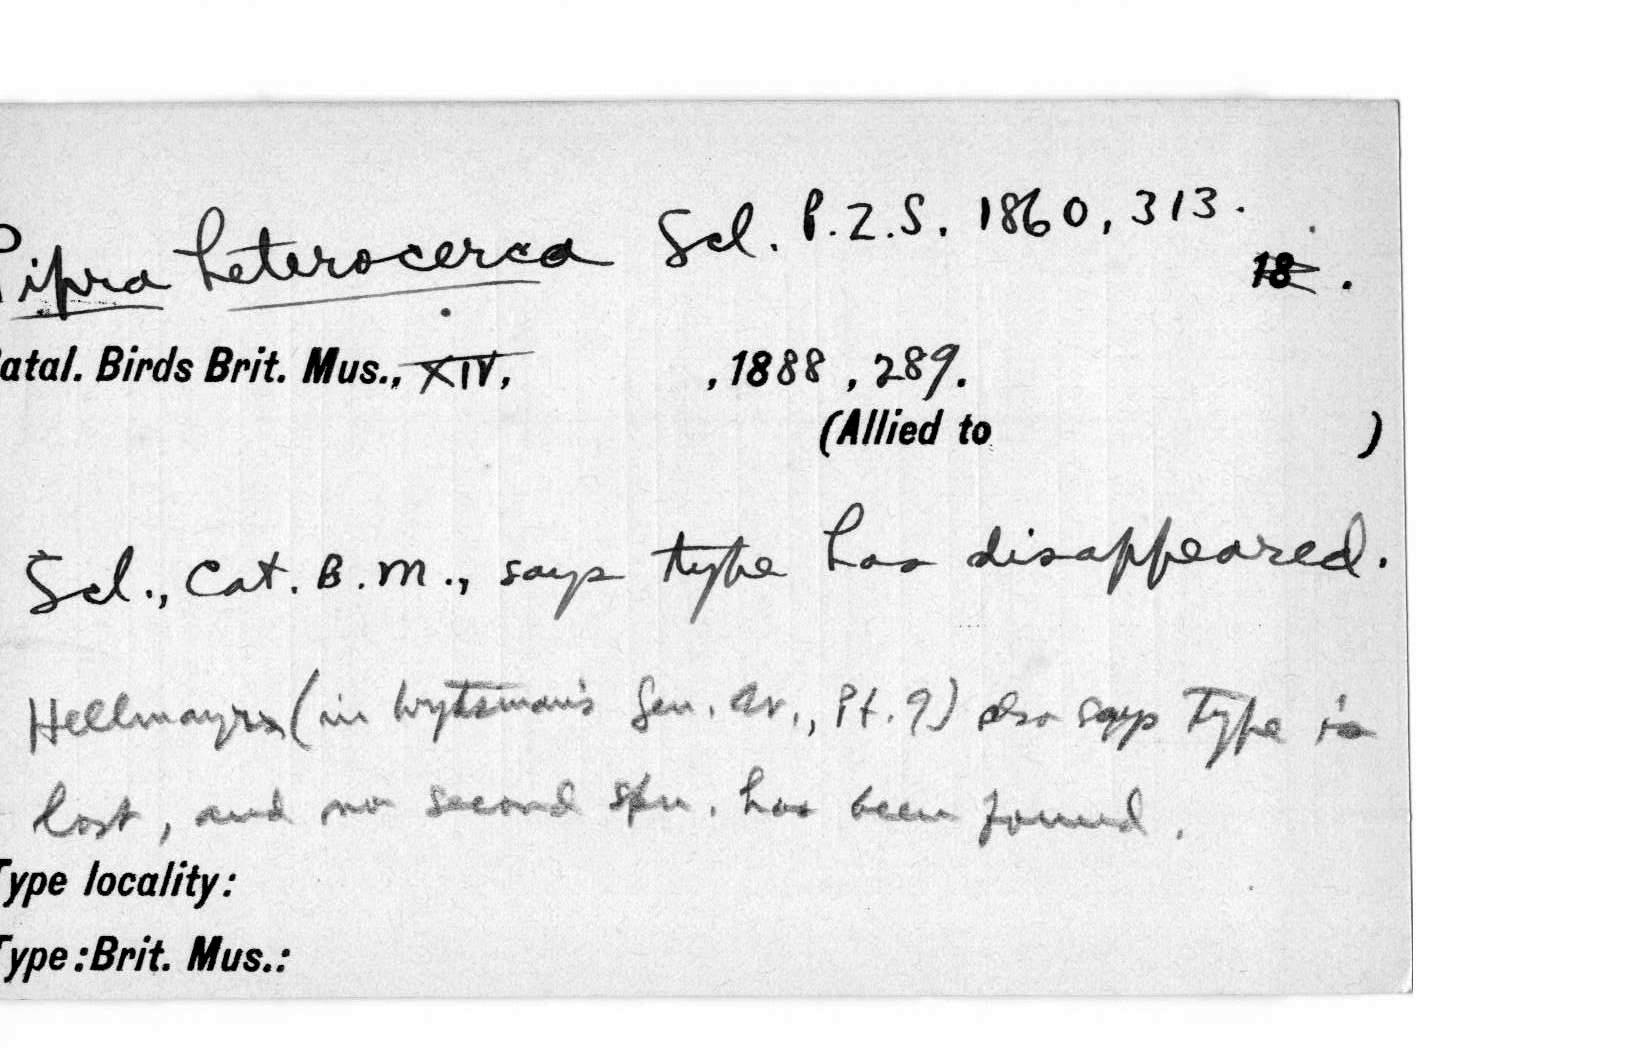 Pipra heterocerca Scl. P.Z.S. 1860, 313.
18 .
Catal. Birds Brit. Mus., XIV, , 1888 , 289.
(Allied to )
Scl., Cat. B.M., says type has disappeared.
Hellmayr (in Wytsman's Gen. Av., Pt. 9) also says type is
lost, and no second spn. has been found.
Type locality:
Type: Brit. Mus.: